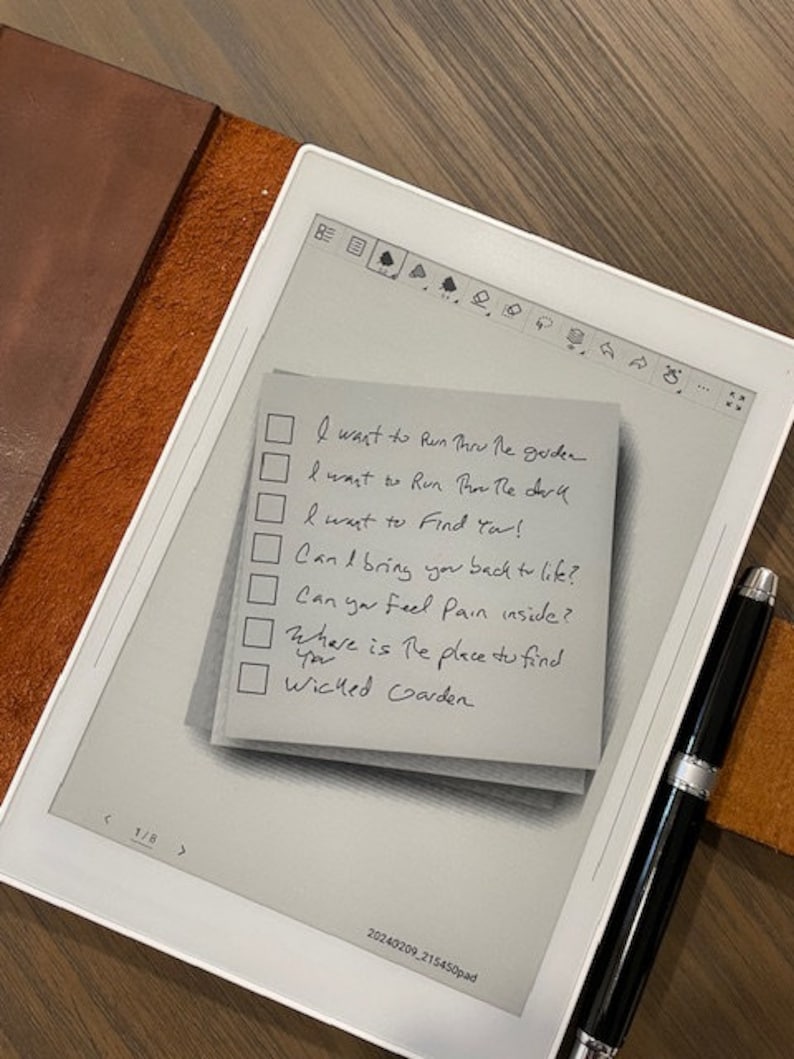 I want to Run Thru The garden
I want to Run Thru The dark
I want to Find You!
Can I bring you back to life?
Can you Feel Pain inside?
Where is The place to find
You
Wicked Garden
1/8
20240209_215450pad